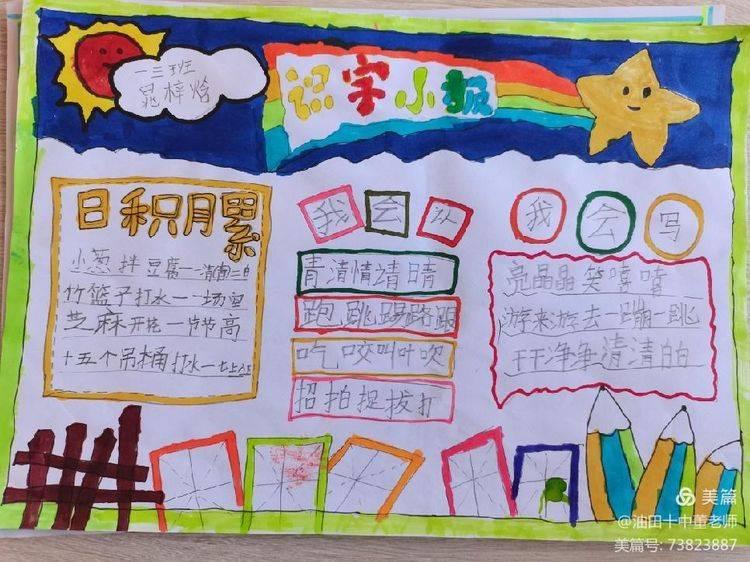 一三班
晁梓焓
识字小报
日积月累
小葱拌豆腐一清二白
竹篮子打水一场空
芝麻开花一节节高
十五个吊桶打水一七上八下
我会认
青清情请晴
跑跳踢路跟
吃咬叫叶吹
招拍捉拔打
我会写
亮晶晶笑嘻嘻
游来游去一蹦一跳
干干净净清清的白
美篇
@油田十中董老师
美篇号: 73823887